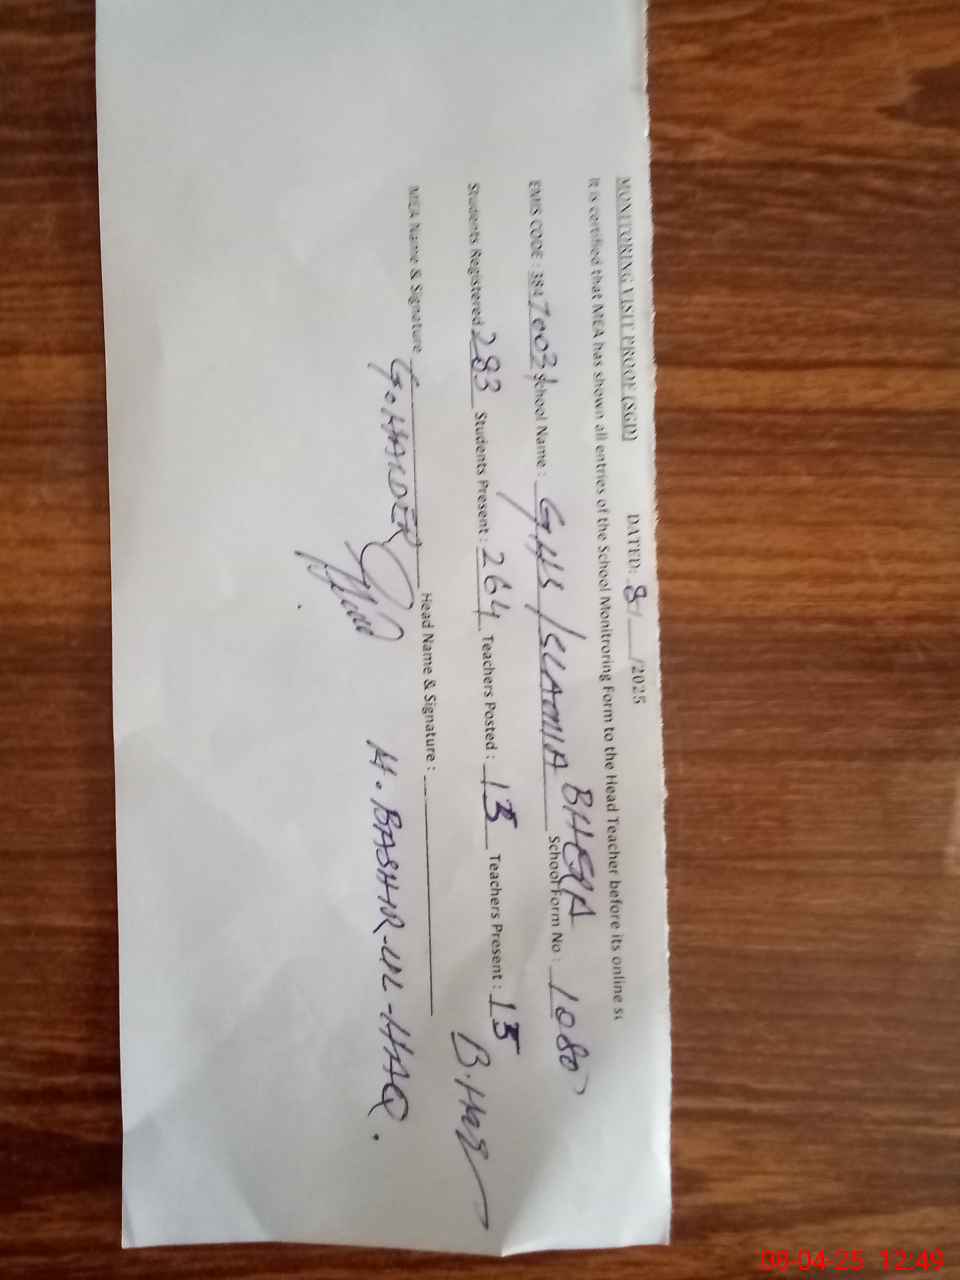 MONITORING VISIT PROOF (SGD) DATED: 8/__/2025
It is certified that MEA has shown all entries of the School Monitroring Form to the Head Teacher before its online su
EMIS CODE : 384 70031 School Name : G.HS ISLAMIA BHERA School Form No : 1080
Students Registered 283 Students Present : 264 Teachers Posted : 13 Teachers Present : 13
MEA Name & Signature G.HAIDER Head Name & Signature : B.Haq
H. BASHIR-UL-HAQ.
08-04-25 12:49